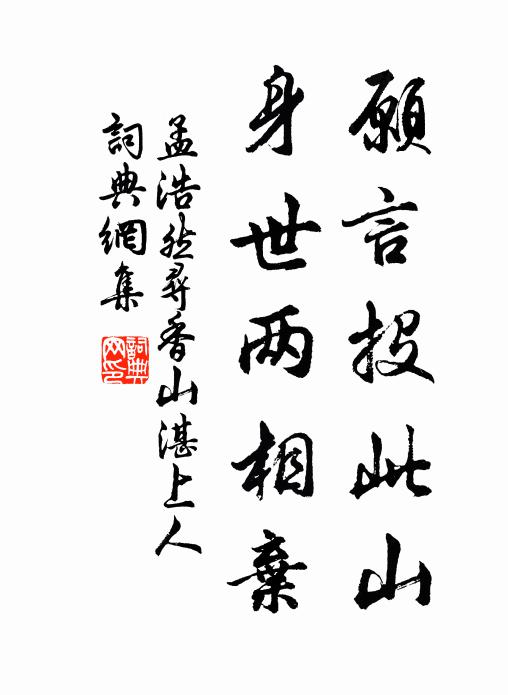 願言投此山
身世两相棄
孟浩然尋香山湛上人
詞典網集
詞典网印